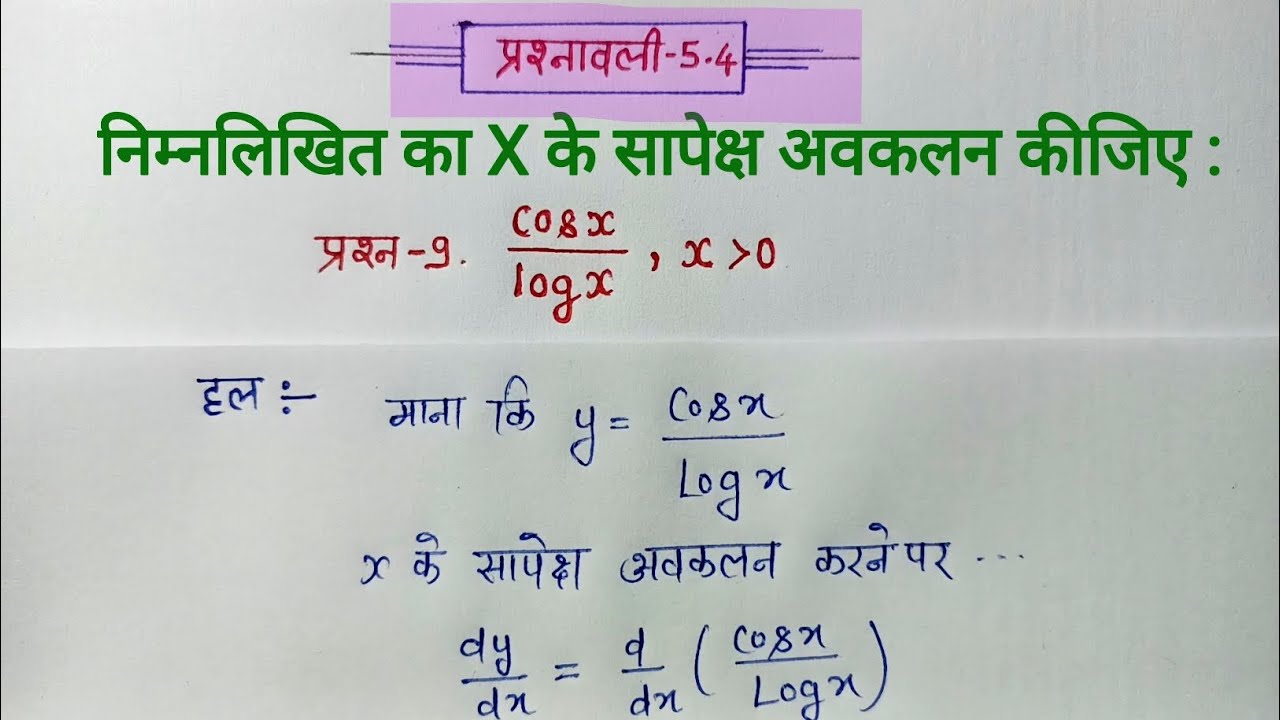 प्रश्नावली-5.4
निम्नलिखित का X के सापेक्ष अवकलन कीजिए :
प्रश्न-9. cosx/logx , x>0
हल :- माना कि y = Cosx/Logx
x के सापेक्ष अवकलन करने पर ...
dy/dx = d/dx (Cosx/Logx)